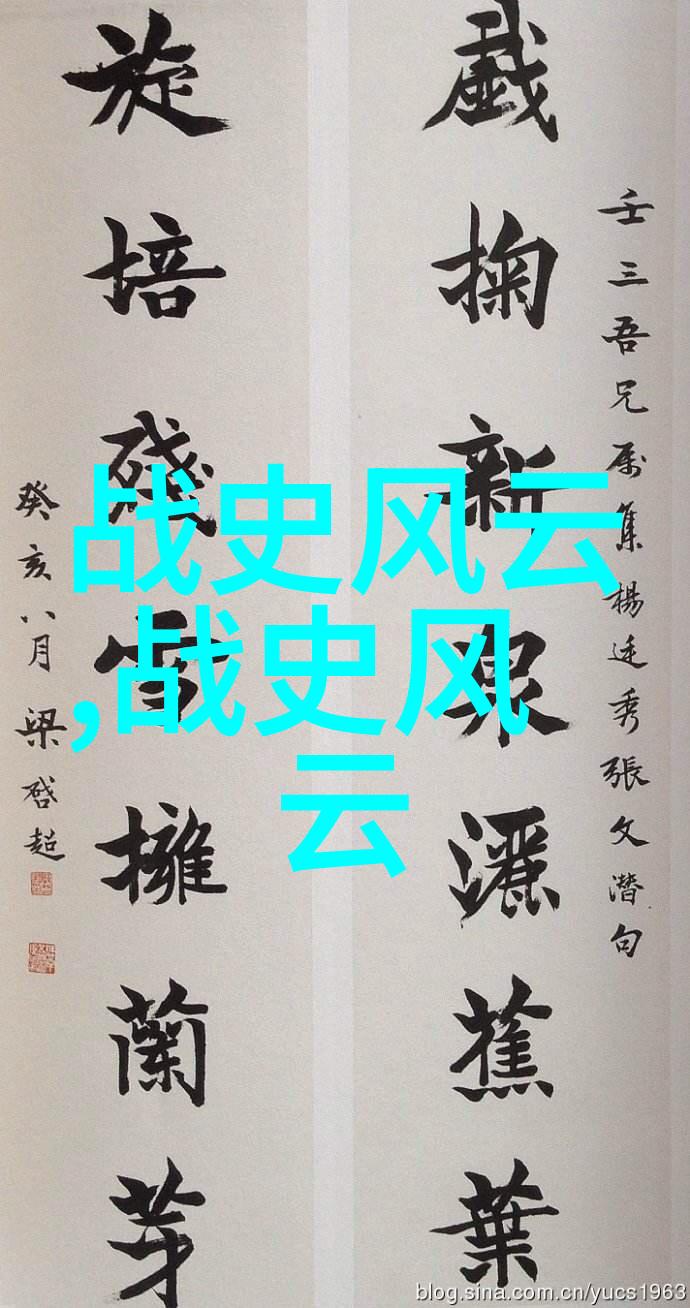 壬三吾兄属集楊廷秀張文潛句
戲掬新泉灑蕉葉
旋培殘雪擁蘭芽
癸亥八月梁啓超
战史风云
,战史风
云
blog.sina.com.cn/yucs1963